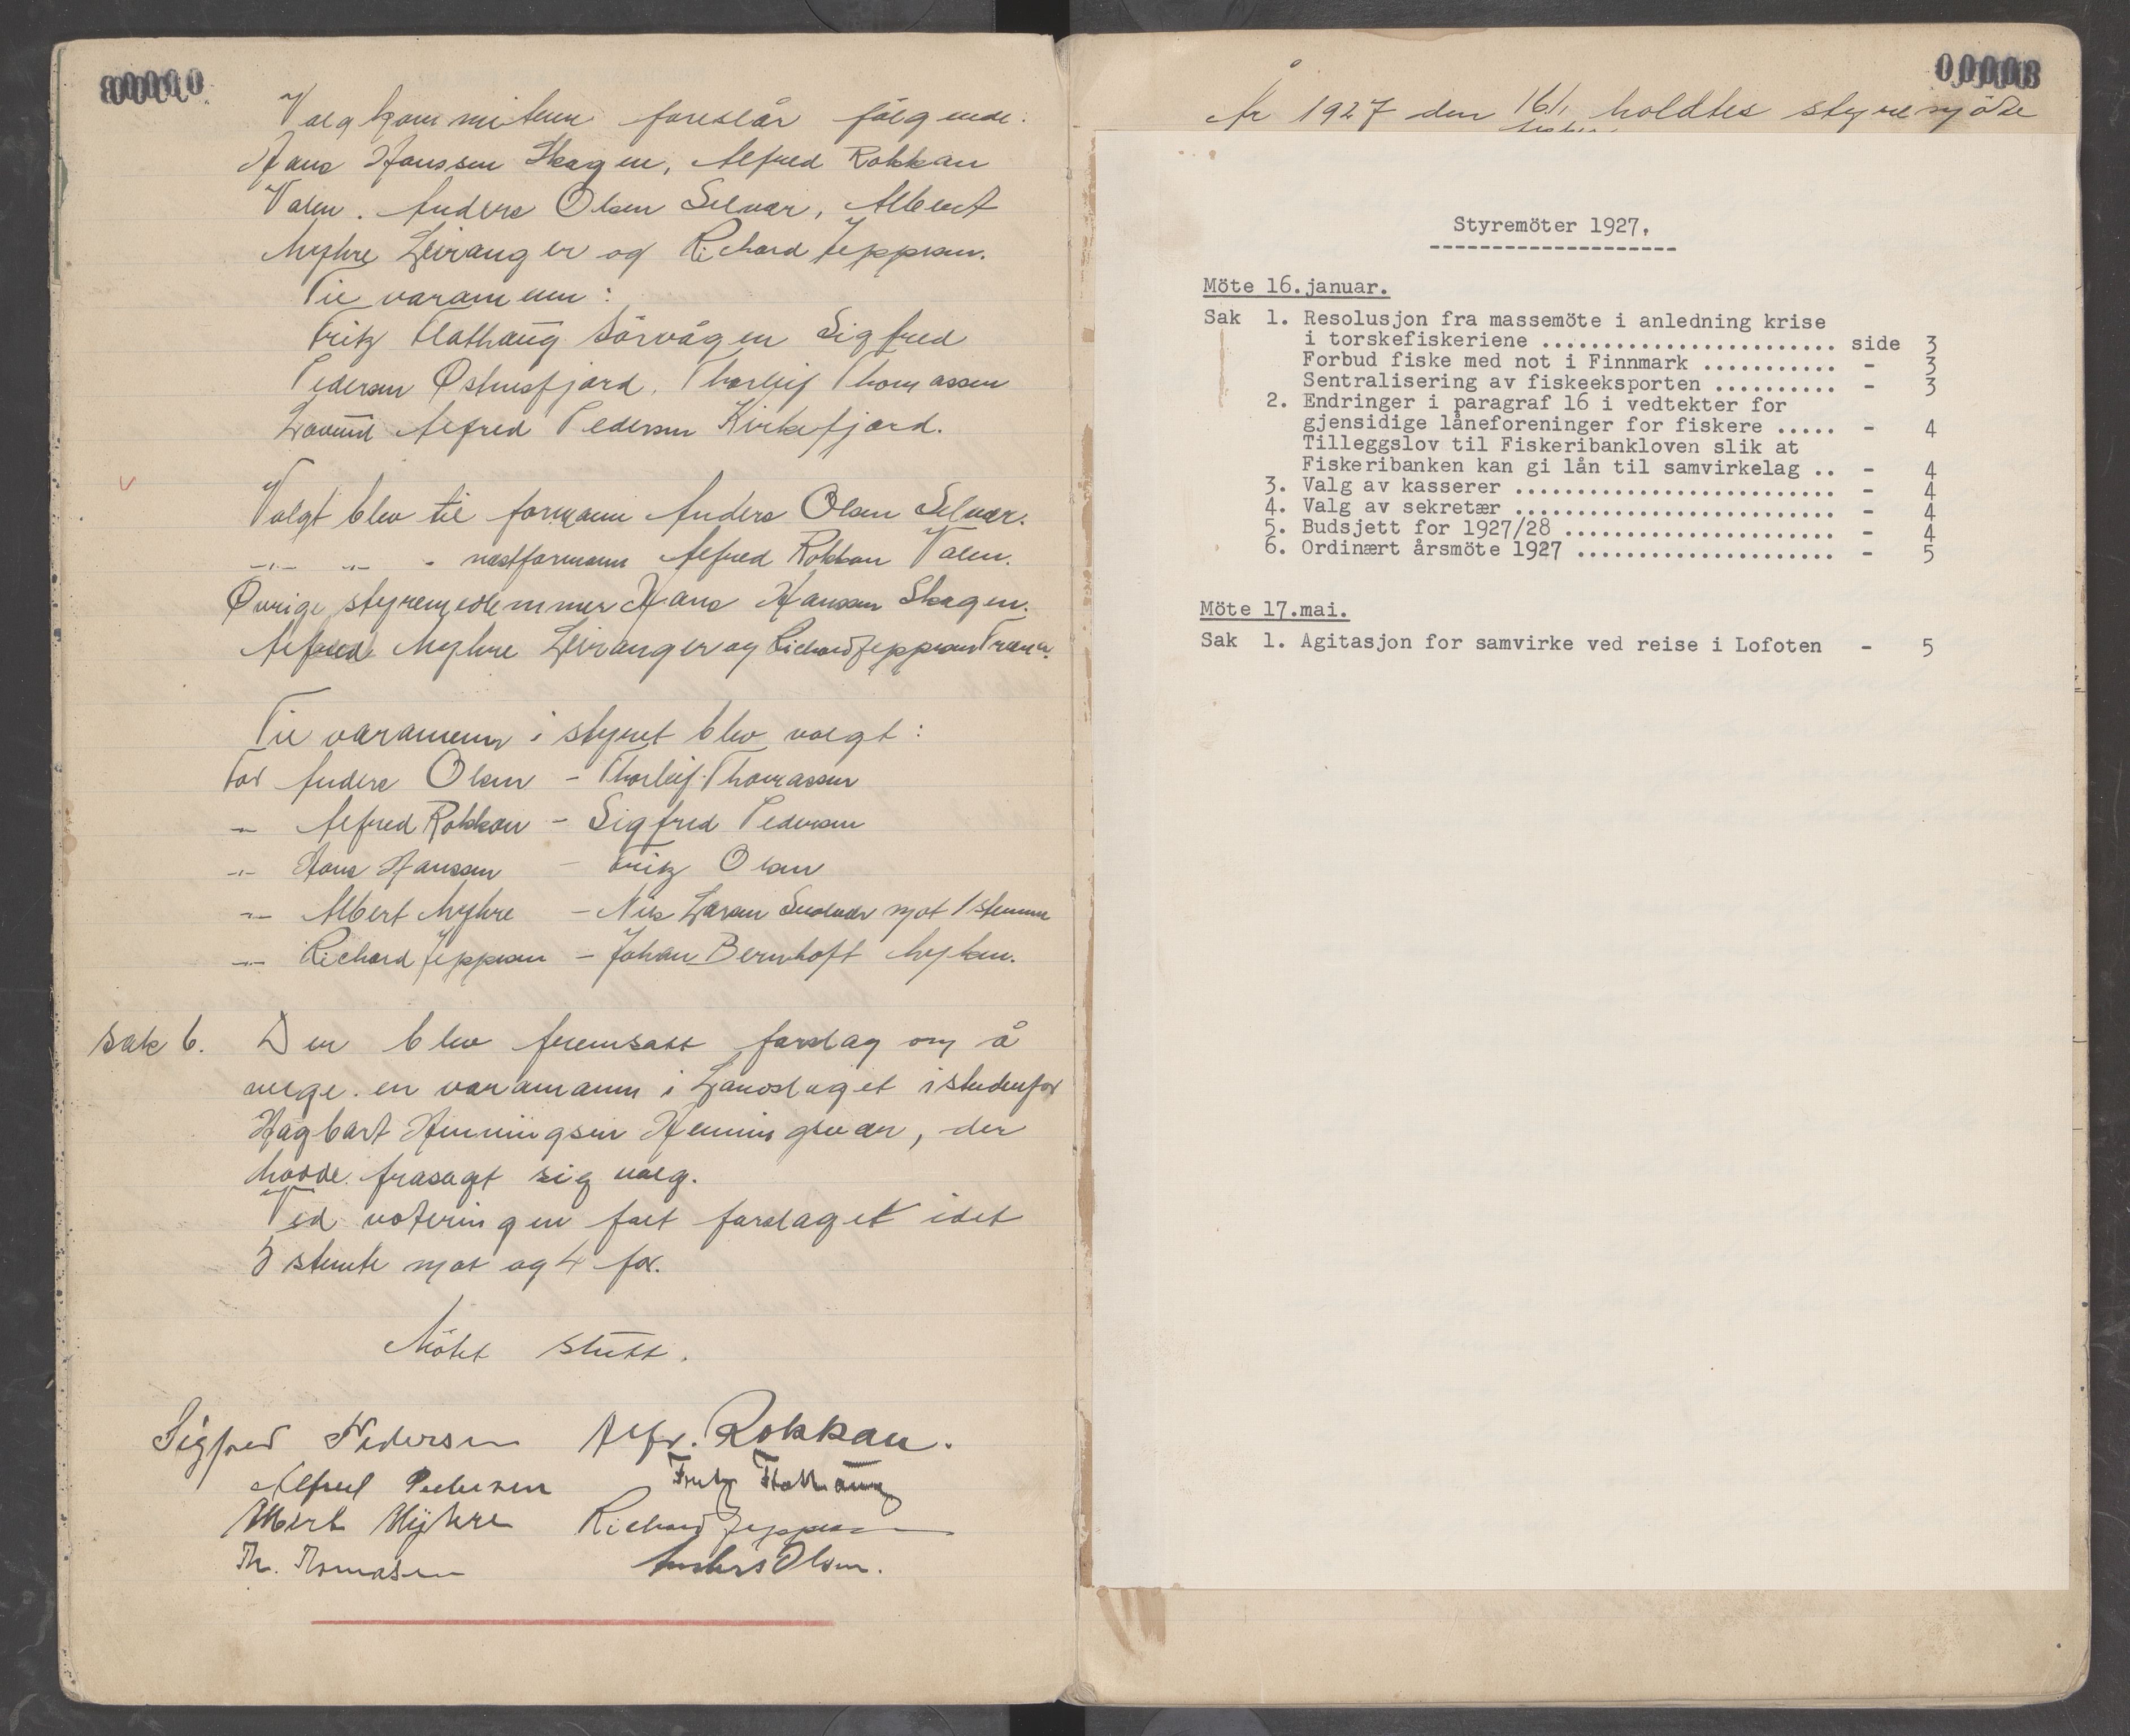 Valgkommiteen foreslår følgende:
Hans Hanssen Skagen, Alfred Rokkan
Valen. Anders Olsen Selvær, Albert
Myhre Leiranger og Richard Jeppesen.
Til varamenn:
Fritz Flathaug Sörvågen Sigfred
Pedersen Østnesfjord, Thorleif Thomassen
Lovund Alfred Pedersen Kirkefjord.
Valgt blev til formann Anders Olsen Selvær.
-"- -"- - nestformann Alfred Rokkan Valen.
Øvrige styremedlemmer Hans Hansen Skagen.
Alfred Myhre Leiranger og Richard Jeppesen Træna.
Til varamenn i styret blev valgt:
For Anders Olsen - Thorleif Thomassen
-"- Alfred Rokkan - Sigfred Pedersen
-"- Hans Hansen - Fritz Olsen
-"- Albert Myhre - Nils Larsen mot 1 stemme
-"- Richard Jeppesen - Johan Bernhoft Myken.
Sak 6. Der blev fremsatt forslag om å
velge en varamann i Landslaget istedenfor
Hagbart Henningsen Henningsvær, der
hadde frasagt sig valg.
Ved voteringen falt forslaget idet
5 stemte mot og 4 for.
Møtet slutt.
Sigfred Pedersen Alfr. Rokkan.
Alfred Pedersen Fritz Flathaug
Albert Myhre Richard Jeppesen
Th. Tomasen Anders Olsen.
00003
År 1927 den 16/1 holdtes styremöte
Styremöter 1927.
Möte 16.januar.
Sak 1. Resolusjon fra massemöte i anledning krise
i torskefiskeriene ........................ side 3
Forbud fiske med not i Finnmark ........... - 3
Sentralisering av fiskeeksporten .......... - 3
2. Endringer i paragraf 16 i vedtekter for
gjensidige låneforeninger for fiskere ..... - 4
Tilleggslov til Fiskeribankloven slik at
Fiskeribanken kan gi lån til samvirkelag .. - 4
3. Valg av kasserer .......................... - 4
4. Valg av sekretær .......................... - 4
5. Budsjett for 1927/28 ...................... - 4
6. Ordinært årsmöte 1927 ..................... - 5
Möte 17.mai.
Sak 1. Agitasjon for samvirke ved reise i Lofoten - 5